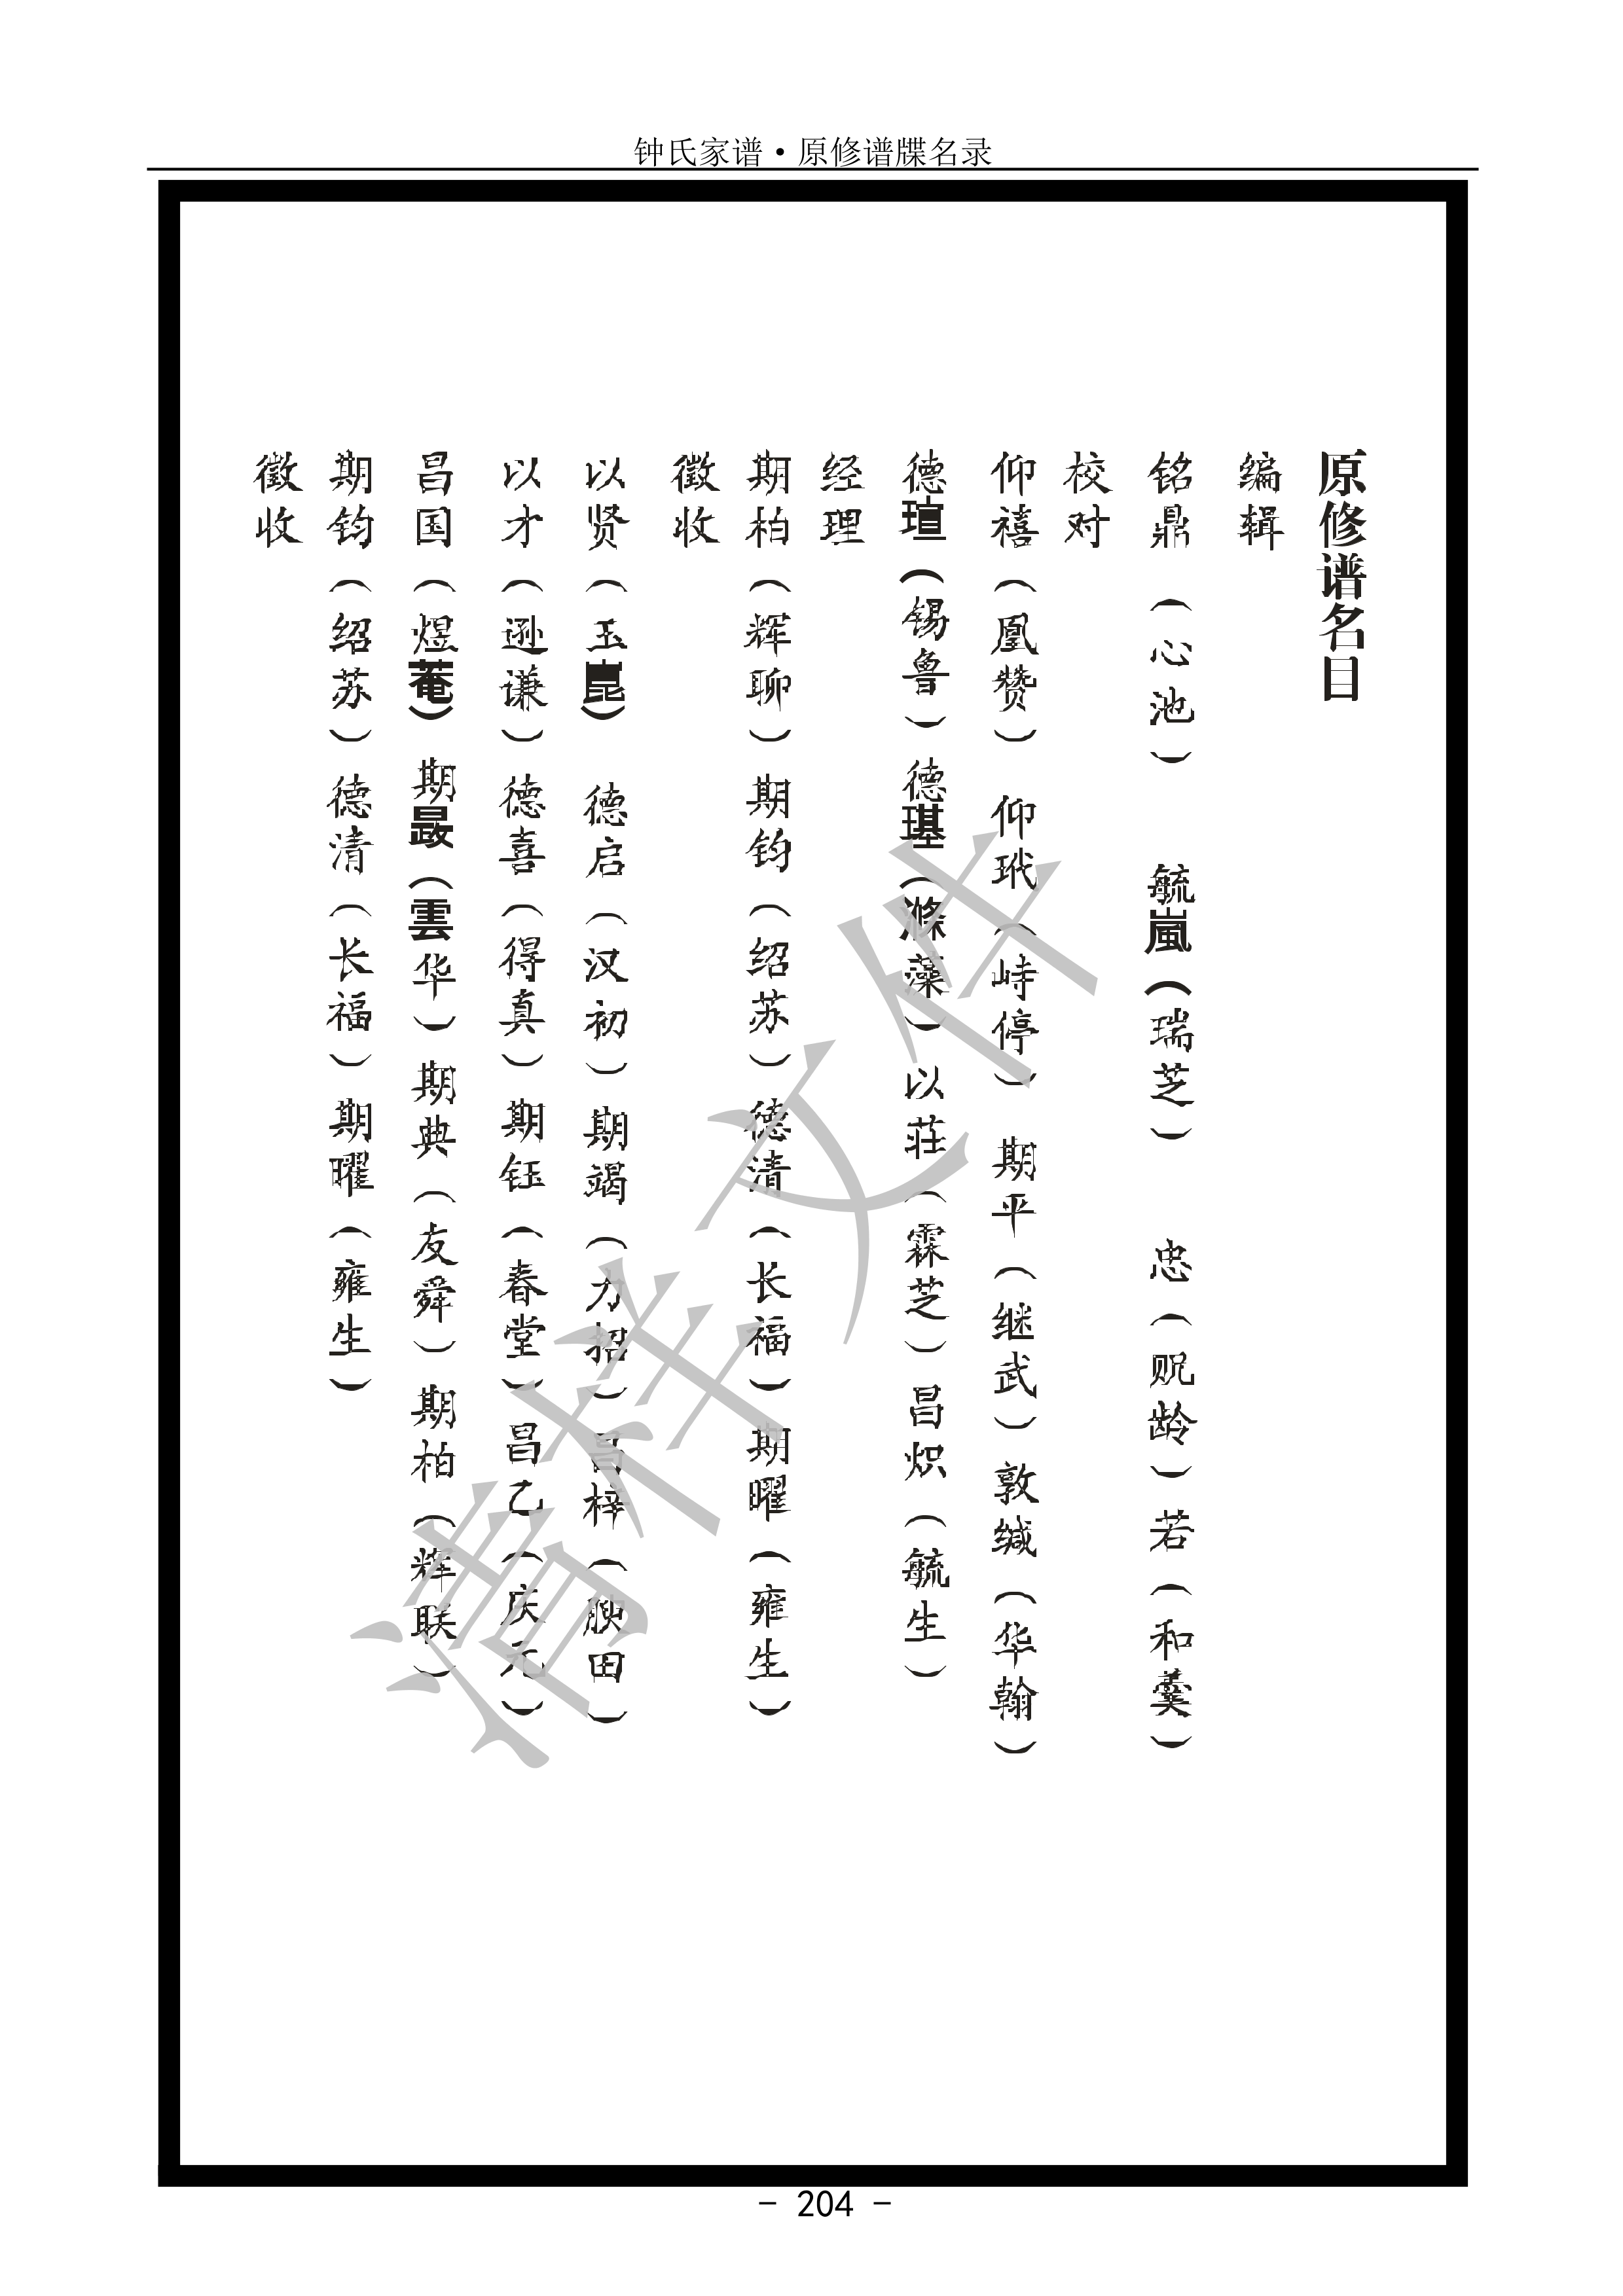 钟氏家谱·原修谱牒名录
原修谱名目
编辑
铭鼎（心池） 毓嵐（瑞芝） 忠（贶龄）若（和羹）
校对
仰禧（凰赞） 仰玳（峙停） 期平（继武）敦缄（华翰）
德瑄（锡鲁）德琪（滌藻）以莊（霖芝）昌炽（毓生）
经理
期柏（辉聊）期钧（绍苏）德清（长福）期曜（雍生）
徵收
以贤（玉崑） 德启（汉初）期竭（力招）昌梓（腴田）
以才（逊谦）德喜（得真）期钰（春堂）昌乙（庆元）
昌国（煜菴） 期晸（雲华）期典（友舜）期柏（辉联）
期钧（绍苏）德清（长福）期曜（雍生）
徵收
清样文件
- 204 -